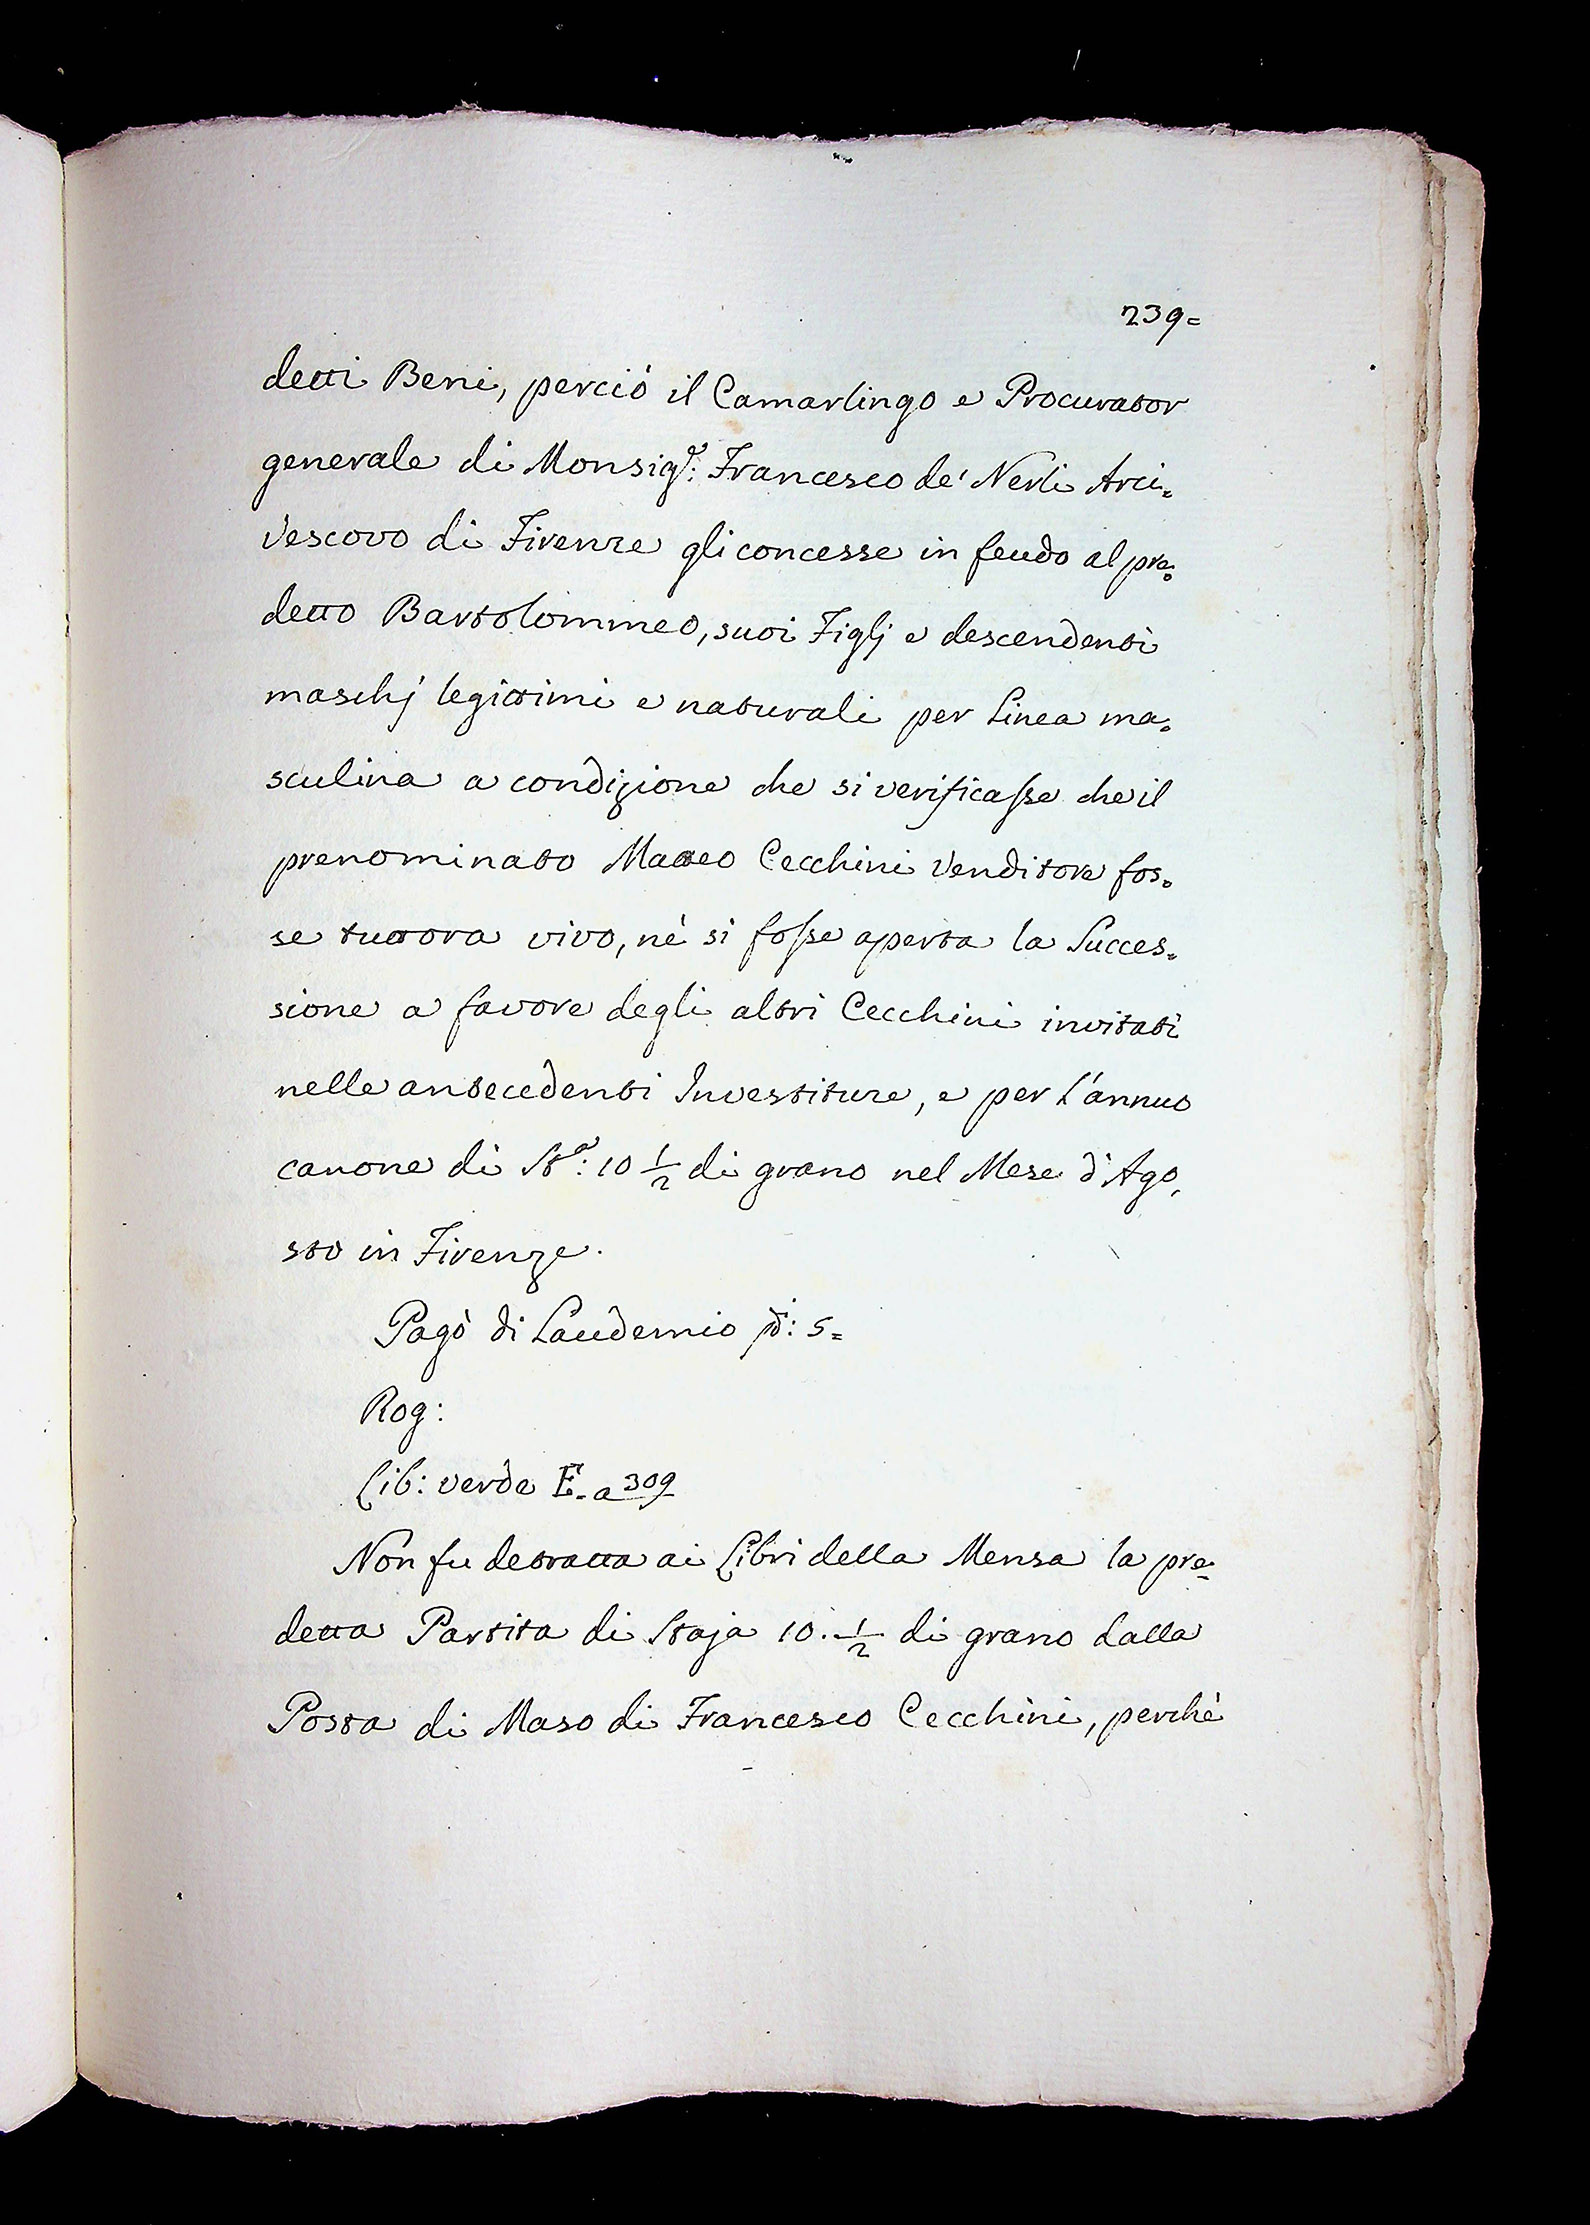 239=
detti Beni, perciò il Camarlingo e Procurator
generale di Monsig.e: Francesco de' Nerli Arci=
vescovo di Firenze gli concesse in feudo al pre=
detto Bartolommeo, suoi Figlj e descendenti
maschj legittimi e naturali per Linea ma=
sculina a condizione che si verificasse che il
prenominato Matteo Cecchini Venditore fos=
se tuttora vivo, nè si fosse aperta la Succes=
sione a favore degli altri Cecchini invitati
nelle antecedenti Investiture, e per l'annuo
canone di Sta: 10 1/2 di grano nel Mese d'Ago=
sto in Firenze.
Pagò di Laudemio : 5=
Rog:
Lib: verde E. a 309
Non fu detratta ai Libri della Mensa la pre=
detta Partita di Staja 10. 1/2 di grano dalla
Posta di Maso di Francesco Cecchini, perchè